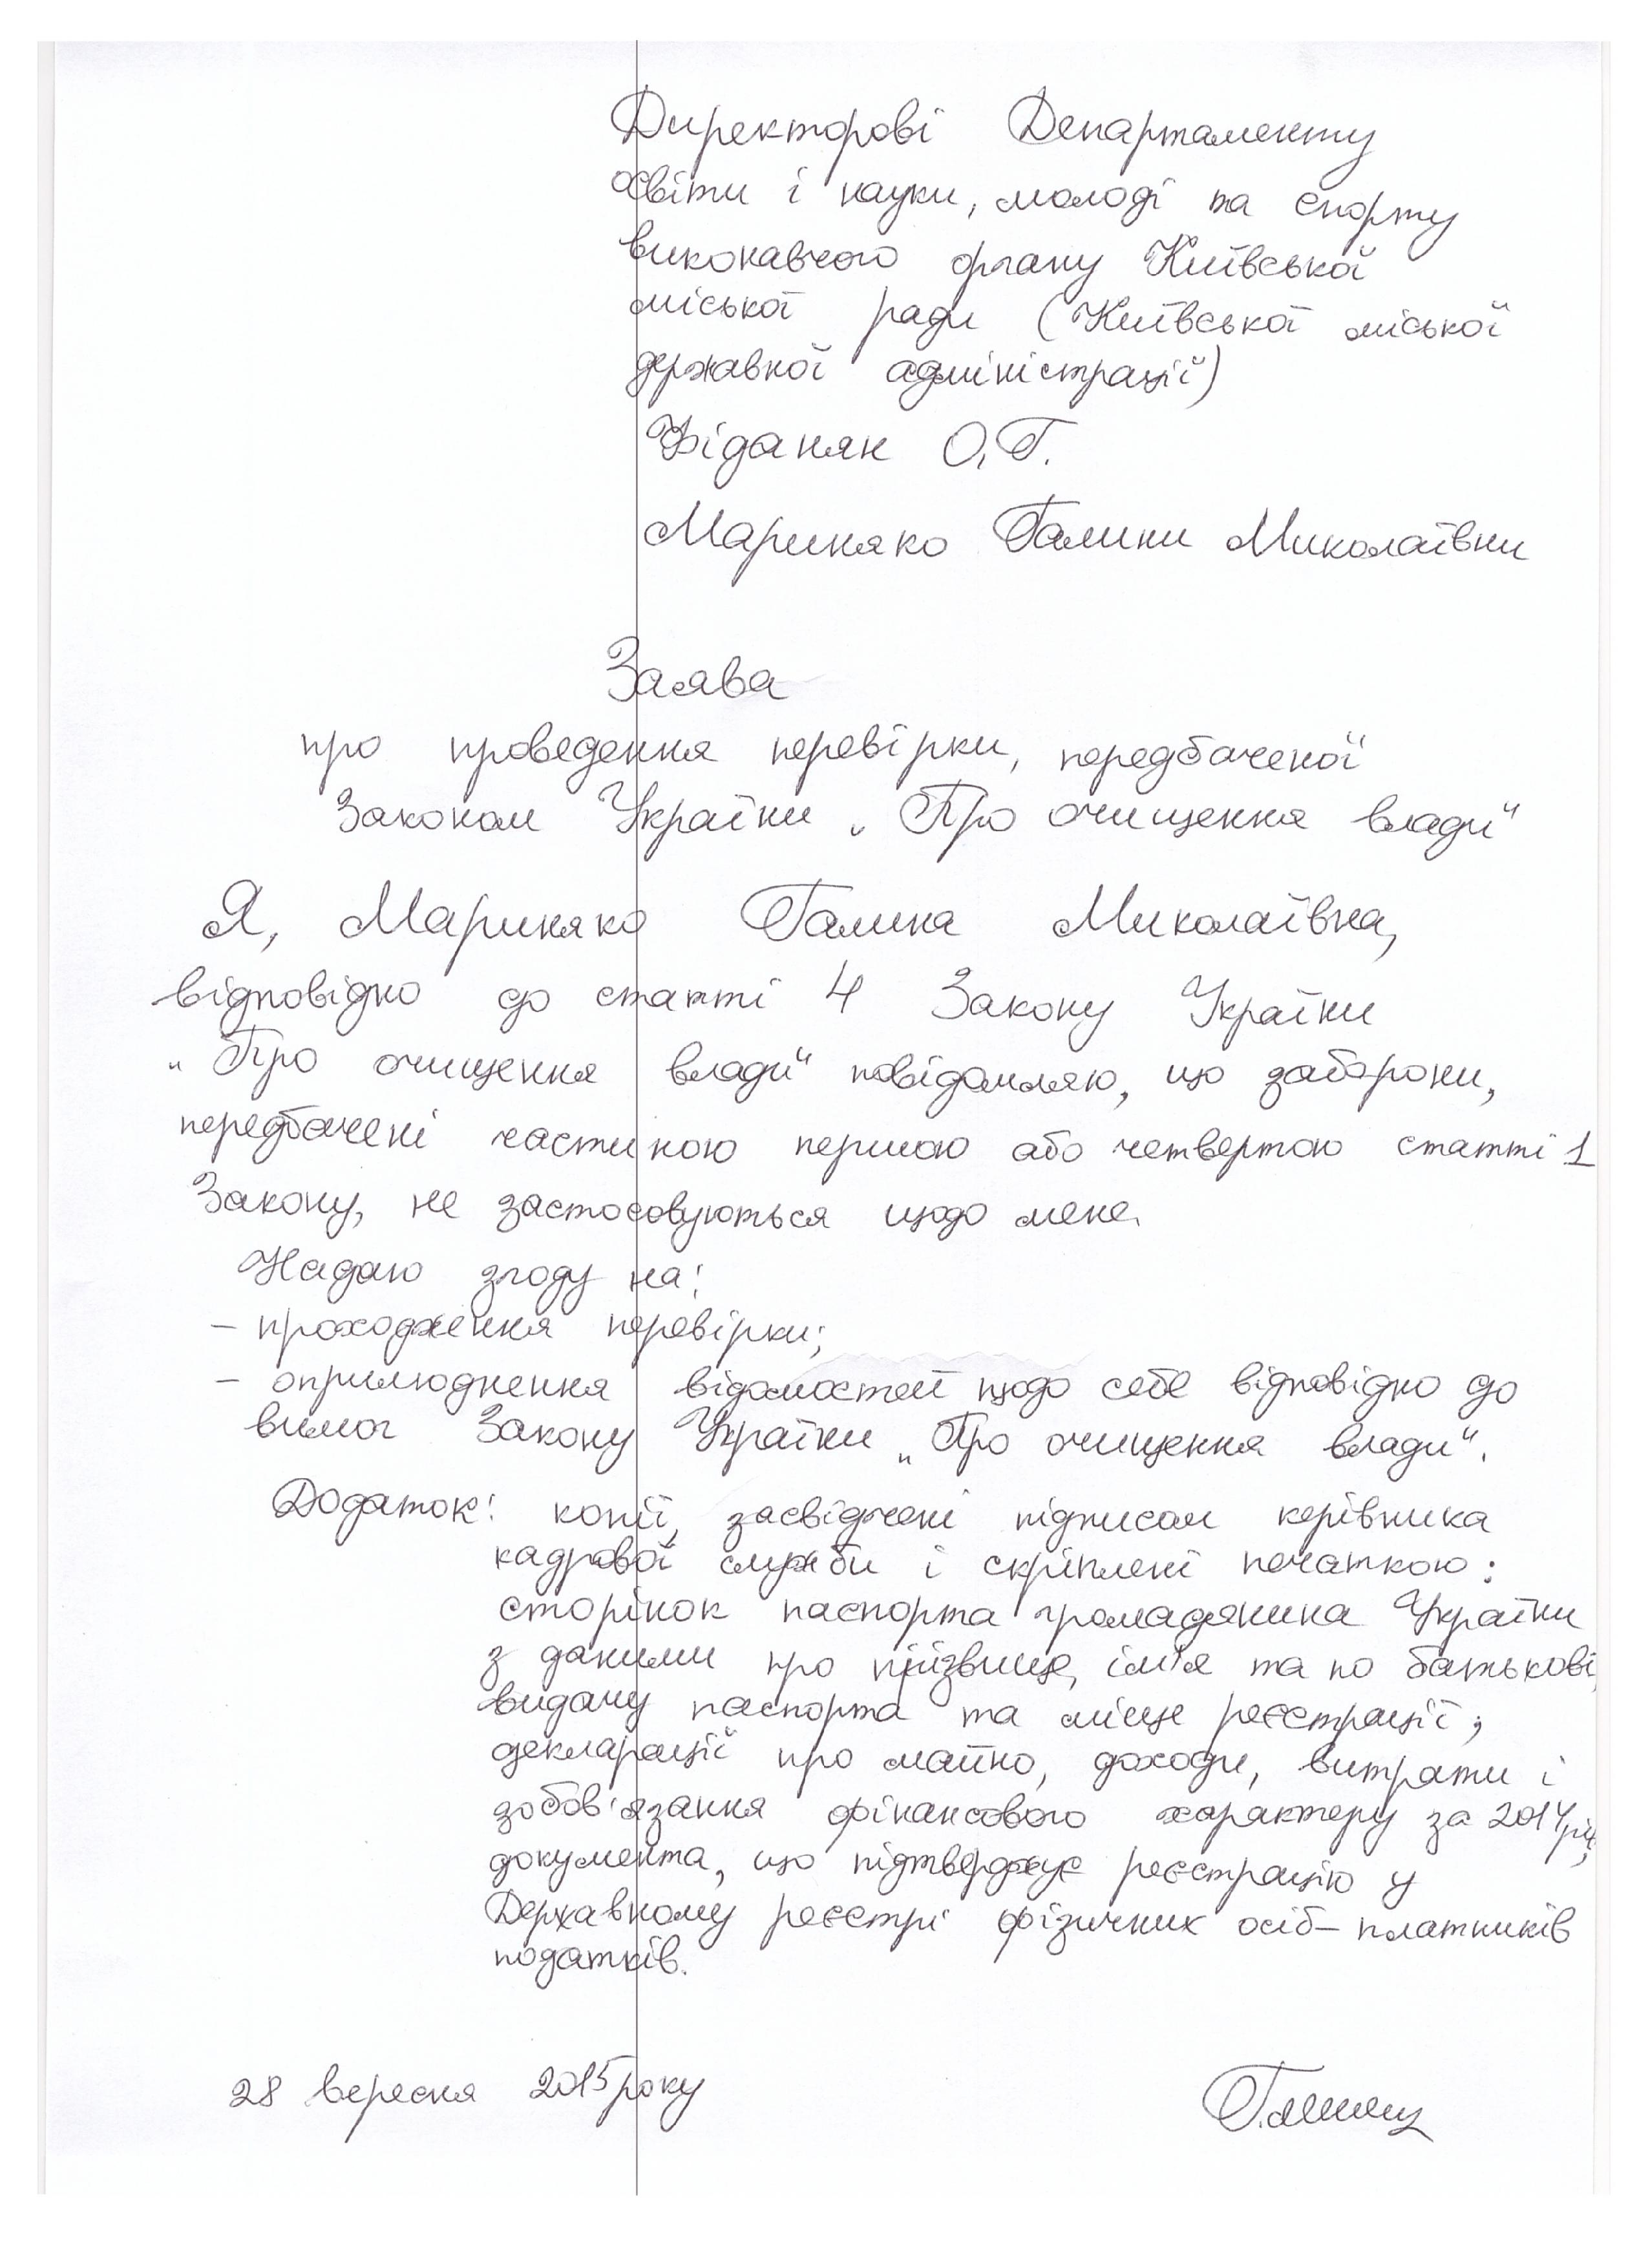 Директорові Департаменту
освіти і науки, молоді та спорту
виконавчого органу Київської
міської ради (Київської міської
державної адміністрації)
Фіданян О.Г.
Мариняко Галини Миколаївни
Заява
про проведення перевірки, передбаченої
Законом України „Про очищення влади“
Я, Мариняко Галина Миколаївна,
відповідно до статті 4 Закону України
„Про очищення влади“ повідомляю, що заборони,
передбачені частиною першою або четвертою статті 1
Закону, не застосовуються щодо мене.
Надаю згоду на:
– проходження перевірки;
– оприлюднення відомостей щодо себе відповідно до
вимог Закону України „Про очищення влади“.
Додаток: копії, засвідчені підписом керівника
кадрової служби і скріплені печаткою:
сторінок паспорта громадянина України
з даними про прізвище, ім'я та по батькові,
видачу паспорта та місце реєстрації;
декларації про майно, доходи, витрати і
зобов'язання фінансового характеру за 2014 рік;
документа, що підтверджує реєстрацію у
Державному реєстрі фізичних осіб – платників
податків.
28 вересня 2015 року